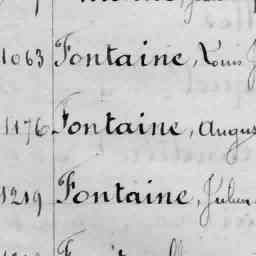 1063 Fontaine, Louis J
1176 Fontaine, Augus
1219 Fontaine, Julien